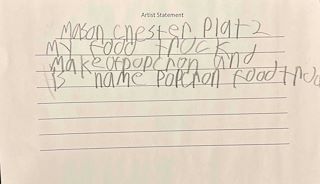 Artist Statement
Mason chester plat 2
My food truck
makeofpopchon and
is name popchon foodtruc